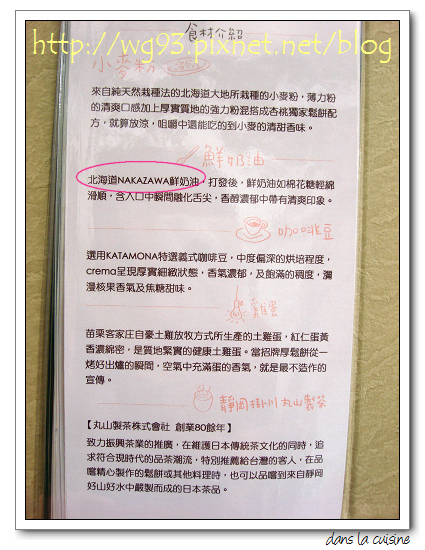 食材介紹
http://wg93.pixnet.net/blog
小麥粉
來自純天然栽種法的北海道大地所栽種的小麥粉，薄力粉
的清爽口感加上厚實質地的強力粉混搭成杏桃獨家鬆餅配
方，就算放涼，咀嚼中還能吃的到小麥的清甜香味。
鮮奶油
北海道NAKAZAWA鮮奶油，打發後，鮮奶油如棉花糖輕綿
滑順，含入口中瞬間融化舌尖，香醇濃郁中帶有清爽印象。
咖啡豆
選用KATAMONA特選義式咖啡豆，中度偏深的烘焙程度，
crema呈現厚實細緻狀態，香氣濃郁，及飽滿的稠度，瀰
漫核果香氣及焦糖甜味。
雞蛋
苗栗客家庄自豪土雞放牧方式所生產的土雞蛋，紅仁蛋黃
香濃綿密，是質地緊實的健康土雞蛋。當招牌厚鬆餅從一
烤好出爐的瞬間，空氣中充滿蛋的香氣，就是最不造作的
宣傳。
靜岡掛川丸山製茶
【丸山製茶株式會社 創業80餘年】
致力振興茶業的推廣，在維護日本傳統茶文化的同時，追
求符合現時代的品茶潮流，特別推薦給台灣的客人，在品
嚐精心製作的鬆餅或其他料理時，也可以品嚐到來自靜岡
好山好水中嚴製而成的日本茶品。
dans la cuisine